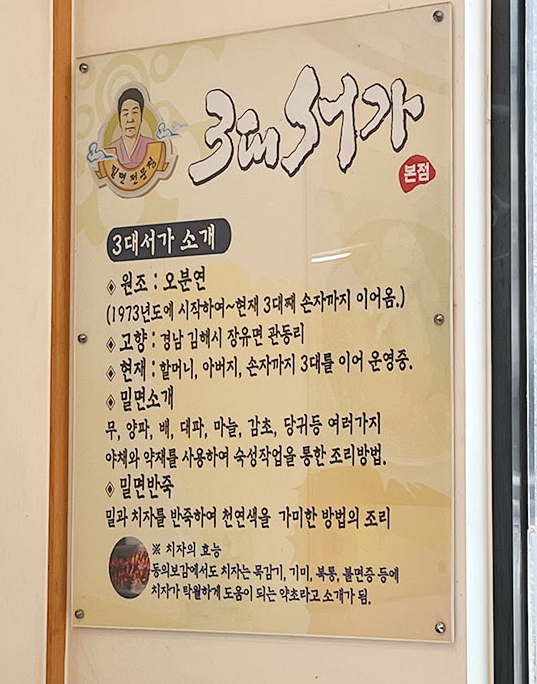 3대서가
본점
밀면전문점
3대서가 소개
◈ 원조 : 오분연
(1973년도에 시작하여~현재 3대째 손자까지 이어옴.)
◈ 고향 : 경남 김해시 장유면 관동리
◈ 현재 : 할머니, 아버지, 손자까지 3대를 이어 운영중.
◈ 밀면소개
무, 양파, 배, 대파, 마늘, 감초, 당귀등 여러가지
야채와 약재를 사용하여 숙성작업을 통한 조리방법.
◈ 밀면반죽
밀과 치자를 반죽하여 천연색을 가미한 방법의 조리
※ 치자의 효능
동의보감에서도 치자는 목감기, 기미, 복통, 불면증 등에
치자가 탁월하게 도움이 되는 약초라고 소개가 됨.